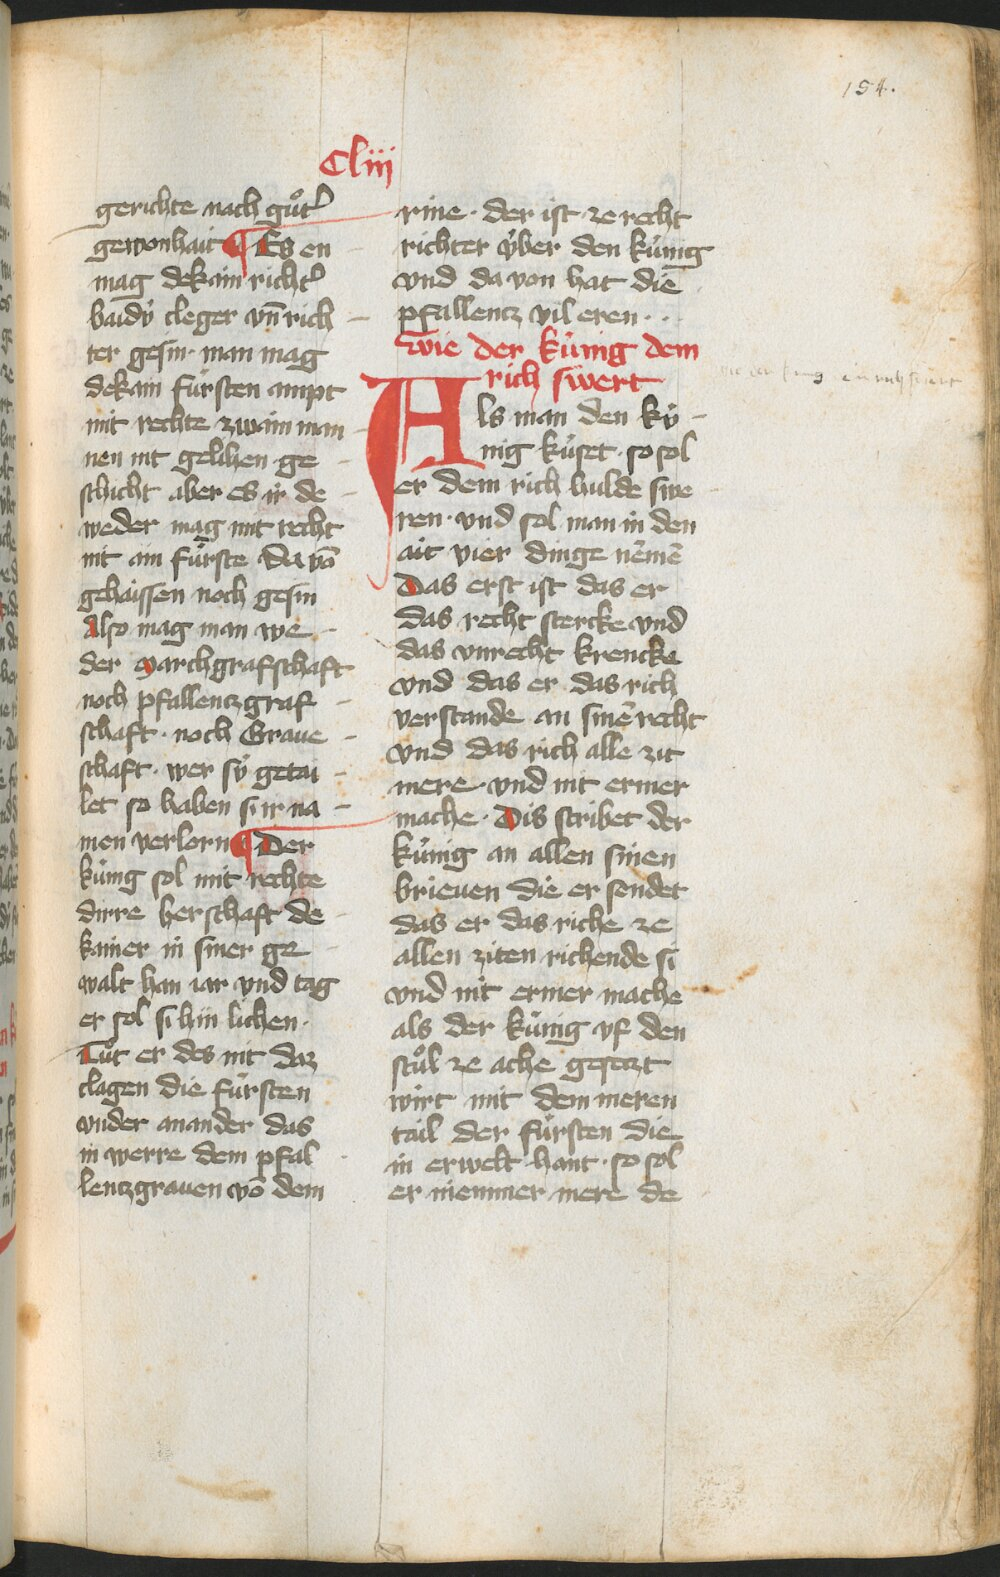 154.
Cliij
gerichte nach guͦt᷑
gewonhait ¶ Es en
mag dekain richt᷑
baidy cleger vn̄ rich
ter gesin · man mag
dekain fúrsten ampt
mit rechte zwain man
nen nit gelihen ge
schicht aber es ir de
weder mag mit recht
nit ain fúrste da vō
gehaissen noch gesin
Also mag man we
der marchgrafschaft
noch pfallentzgraf
schaft · noch Graue
schaft · wer sy getai
let so haben si ir na
men verlorn ¶ Der
kúnig sol mit rechte
dirre herschaft de
kainer in siner ge
walt han iar vnd tag
er sol si hin lichen ·
Tuͦt er des nit daz
clagen die fúrsten
vnder ainander das
in werre dem pfal
lentzgrauen vō dem
rine · der ist ze recht
richter v́ber den kúnig
vnd da von hat die
pfallentz vil eren · · ·
wie der kúnig dem
rich swert
Als man den kú
nig kúset · so sol
er dem rich hulde swe
ren · vnd sol man in den
ait vier dinge nēmē
Das erst ist das er
das recht stercke vnd
das vnrecht krencke
vnd das er das rich
verstande an sinē recht
vnd das rich alle zit
mere · vnd nit ermer
mache · Dis scribet der
kúnig an allen sinen
brieuen die er sendet
das er das riche ze
allen ziten richende si
vnd nit ermer mache
als der kúnig vf den
stuͦl ze ache gesetzt
wirt mit dem meren
tail der fúrsten die
in erwelt hant · so sol
er niemmer mere de